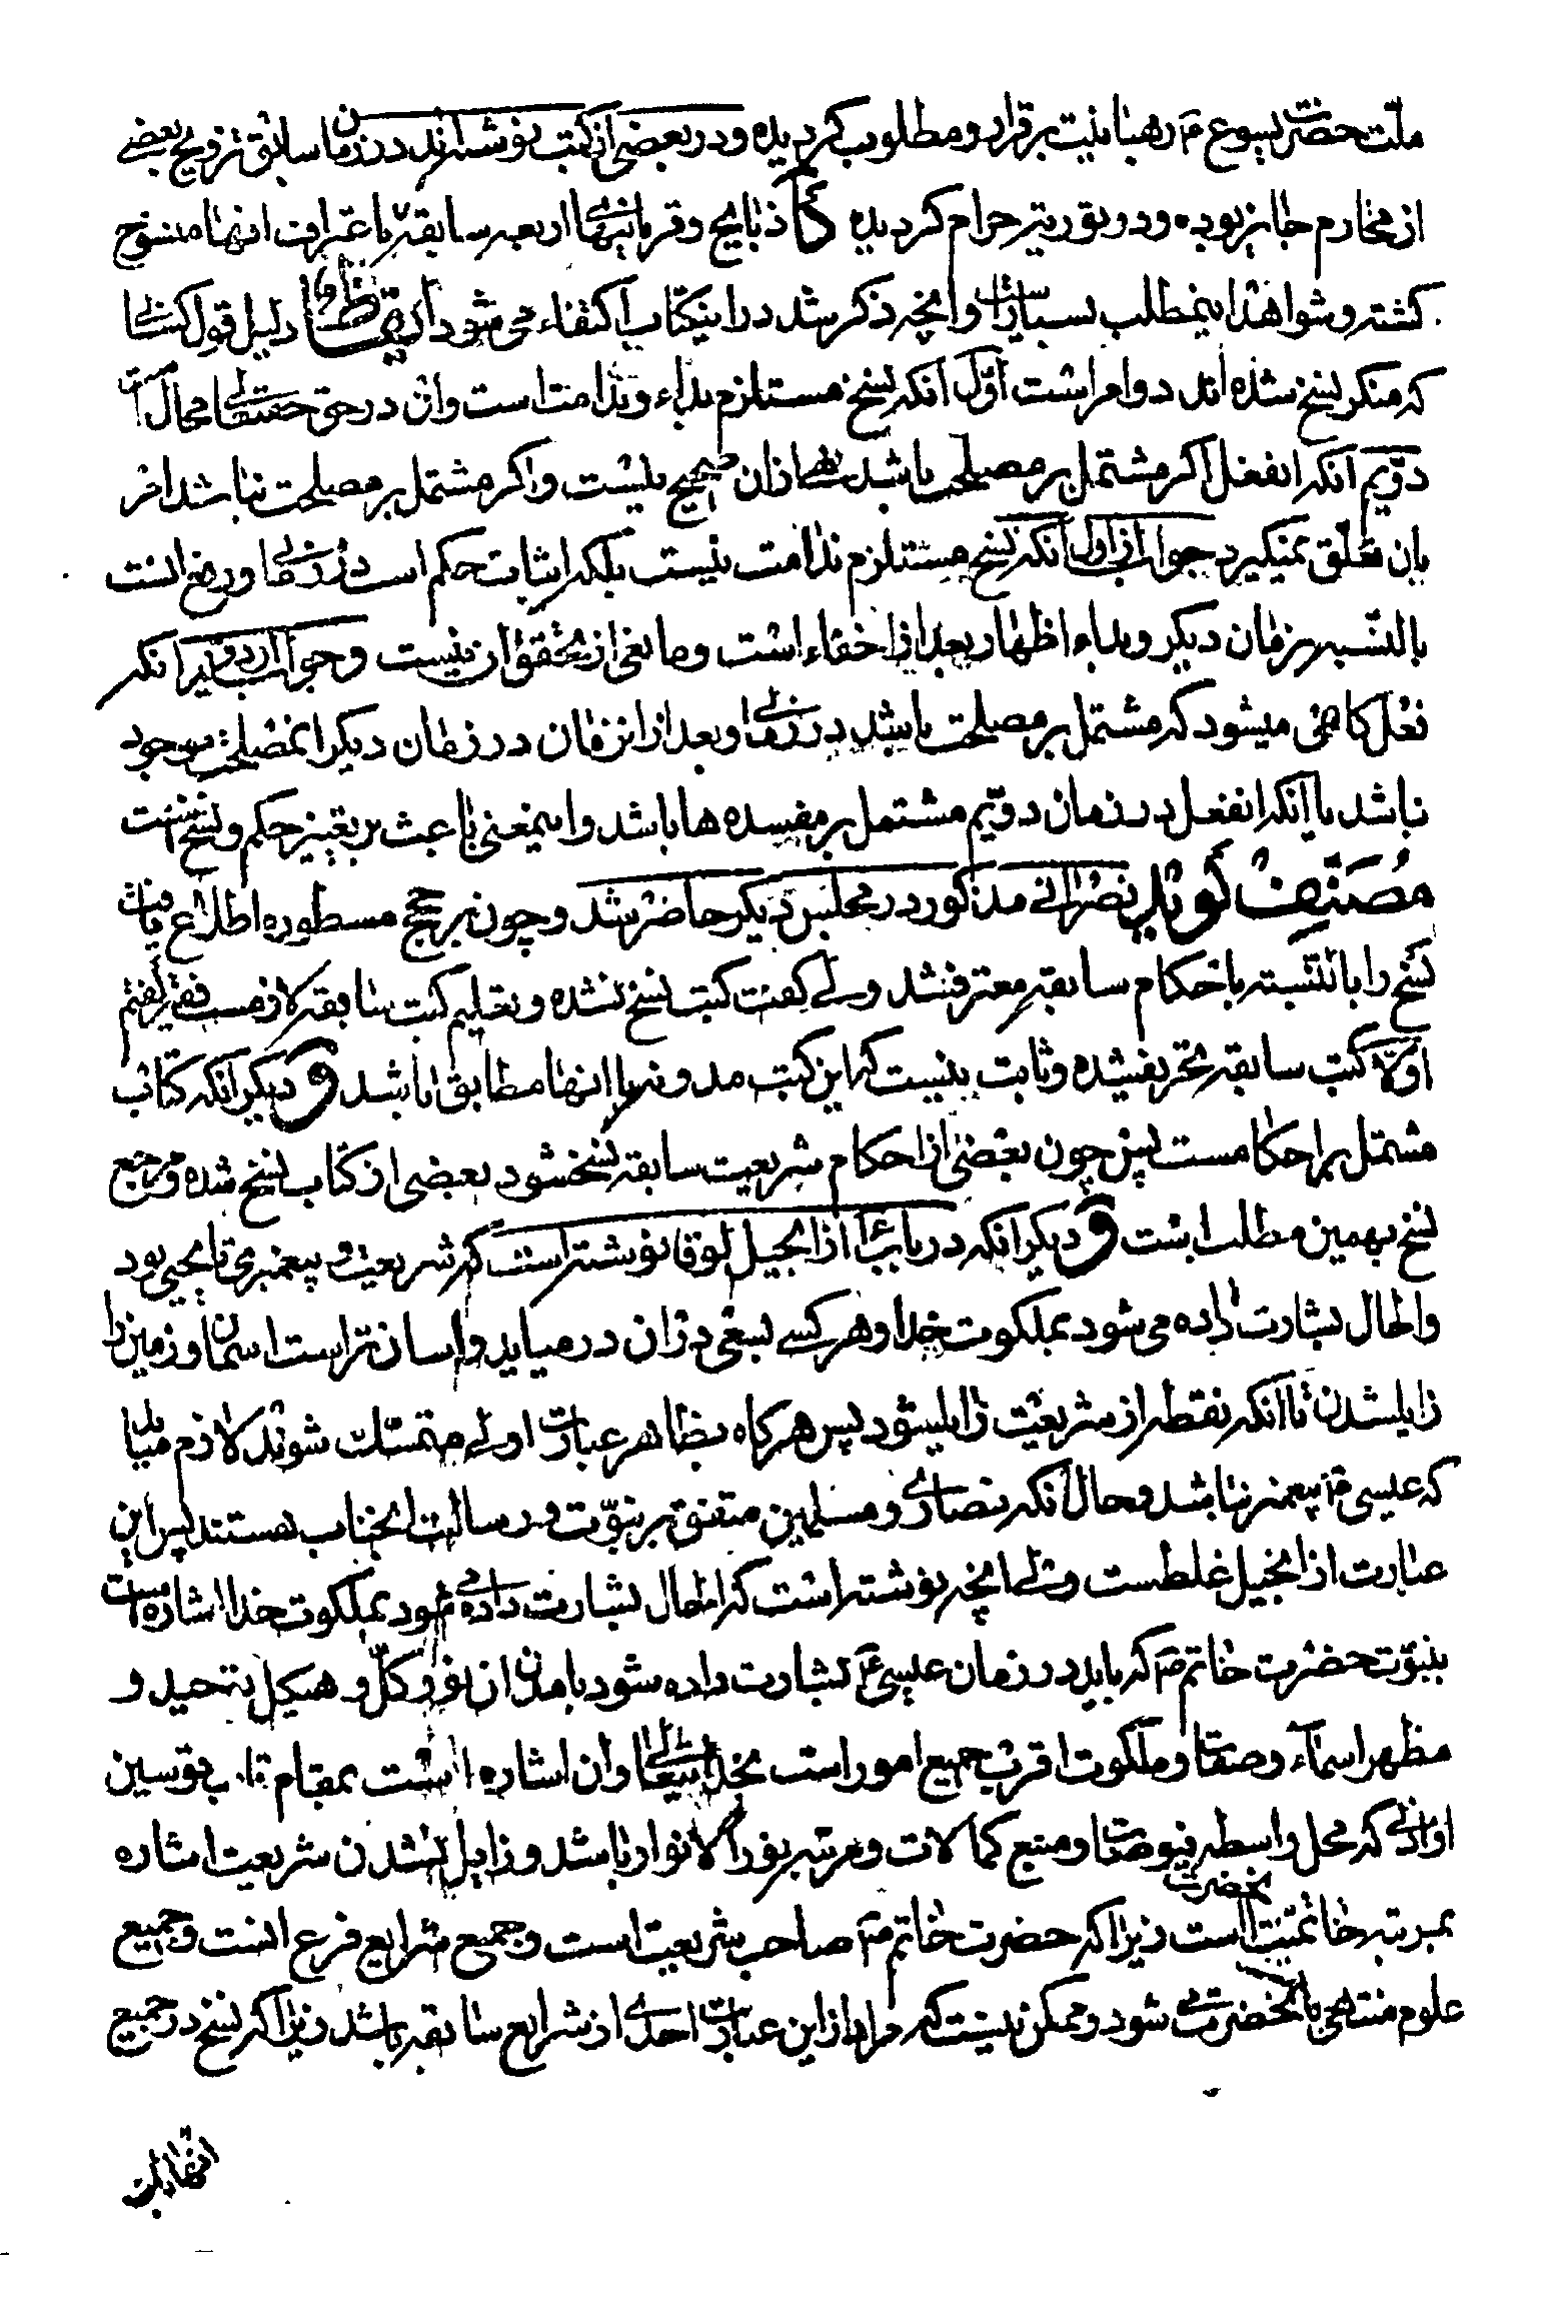 ملّت حضرت یسوع ۴م رهبانیت برقرار و مطلوب گردیده و در بعضی از کتب نوشته‌اند در زمان سابق تزویج بعضی
از محارم جایز بوده و در توریة حرام گردیده کلّا ذبایح و قربانیهای اربعه سابقه باعتراف انها منسوخ
گشته و شواهد اینمطلب بسیار است و آنچه ذکر شد در اینکتاب اکتفاء می شود دلیل قول کسانی
که منکر نسخ شده اند دو امر است اوّل آنکه نسخ مستلزم بداء و ندامت است وان در حق حقتعالی محال است
دوّیم آنکه انفعل اگر مشتمل بر مصلحت باشد نهی ازان صحیح نیست و اگر مشتمل بر مصلحت نباشد امر
بان تعلّق نمیگیرد جواب از اول آنکه نسخ مستلزم ندامت نیست بلکه اثبات حکم است در زمانی و رفع انست
بالنّسبه بزمان دیگر و بداء اظهار بعد از اخفاء است و مانعی از تحقق ان نیست و جواب از دویم انکه
فعل کاهی میشود که مشتمل بر مصلحت باشد در زمانی و بعد از انزمان در زمان دیگر انمصلحت موجود
نباشد یا آنکه انفعل در زمان دوّیم مشتمل بر مفسده ها باشد و اینمعنی باعث بر تغییر حکم و نسخ است
مُصَنِّف گوید نصرانی مذکور در مجلس دیگر حاضر شد و چون بر حجج مسطوره اطلاع یافت
نسخ را بالنّسبه باحکام سابقه معترفشد ولی گفت کتب نسخ نشده و تعلیم کتب سابقه لازمست فقیر گفتم
اوّلا کتب سابقه تحریفشده و ثابت نیست که این کتب مدونه با انها مطابق باشد و دیگر انکه کتاب
مشتمل بر احکامست پس چون بعضی از احکام شریعت سابقه نسخشود بعضی از کتاب نسخ شده و مرجع
نسخ بهمین مطلب است و دیگر انکه در باب از انجیل لوقا نوشته است که شریعت و پیغمبری تا یحیی بود
والحال بشارت داده می شود بملکوت خدا و هر کسی بسعی در ان در میاید و اسان تر است اسمان و زمین را
زایلشدن تا آنکه نقطه از شریعت زایلشود پس هر کاه بظاهر عبارت اولی متمسّک شوند لازم میاید
که عیسی ۴م پیغمبر نباشد و حال آنکه نصاری و مسلمین متفق بر نبوّت و رسالت انجناب هستند پس این
عبارت از انجیل غلطست ولی انچه نوشته است که الحال بشارت داده می شود بملکوت خدا اشاره است
بنبوّت حضرت خاتم ۴ص که باید در زمان عیسی ۴ بشارت داده شود بامدن ان نور کلّ و هیکل توحید و
مظهر اسماء و صفات و ملکوت اقرب جمیع امور است بخدایتعالی و ان اشاره است بمقام قاب قوسین
او ادنی که محل واسطه فیوضات و منبع کمالات و مرتبه نور الانوار باشد و زایل نشدن شریعت اشاره
بمرتبه خاتمیّت انحضرت است زیرا که حضرت خاتم ۴ص صاحب شریعت است و جمیع شرایع فرع انست و جمیع
علوم منتهی بانحضرت می شود و ممکن نیست که مراد از این عبارت احدی از شرایع سابقه باشد زیرا که نسخ در جمیع